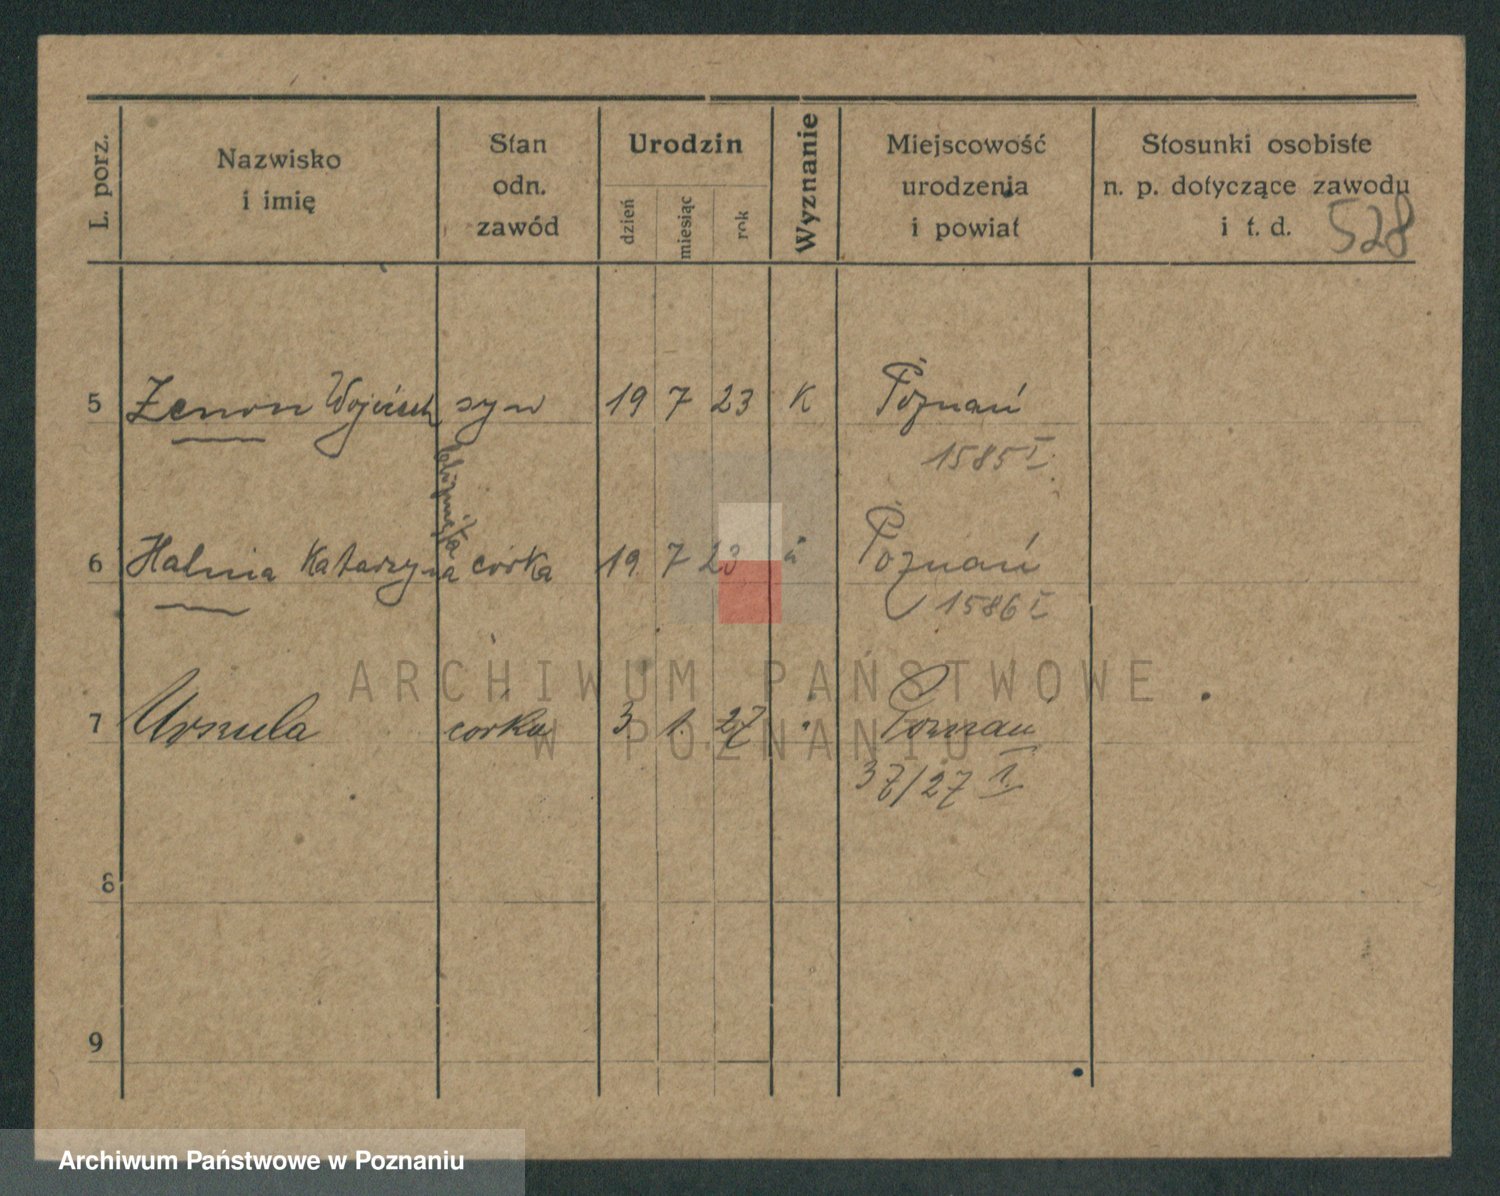 L. porz.
Nazwisko
i imię
Stan
odn.
zawód
Urodzin
dzień
miesiąc
rok
Wyznanie
Miejscowość
urodzenia
i powiat
Stosunki osobiste
n. p. dotyczące zawodu
i t. d.
528
5 Zenon Wojciech syn 19 7 23 K Poznań
1585 I
bliźnięta
6 Halina Katarzyna córka 19 7 23 " Poznań
1586 I
ARCHIWUM PAŃSTWOWE
W POZNANIU
7 Ursula corka 3 1. 27 " Poznan
37/27 I
8
9
Archiwum Państwowe w Poznaniu